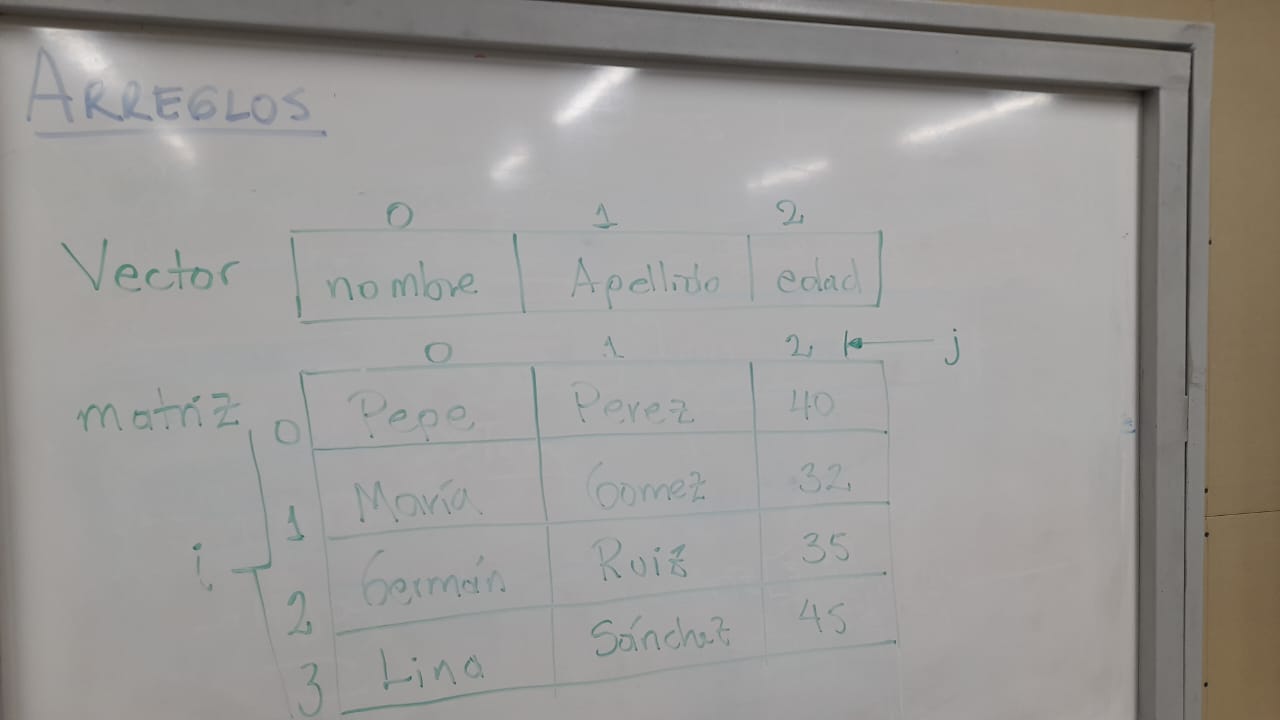 ARREGLOS
0 1 2
Vector nombre Apellido edad
0 1 2 j
matriz 0 Pepe Perez 40
1 María Gomez 32
i
2 Germán Ruiz 35
3 Lina Sánchez 45